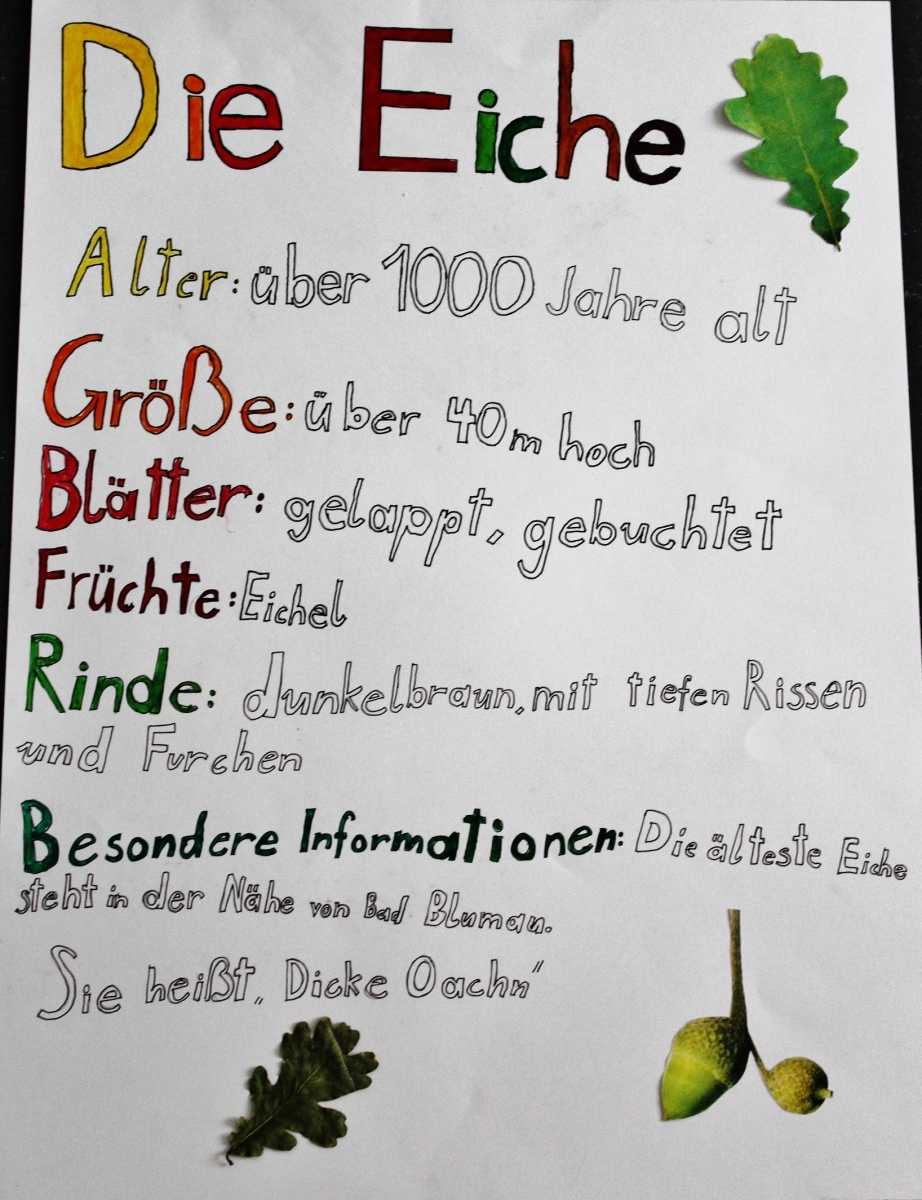 Die Eiche
Alter: über 1000 Jahre alt
Größe: über 40m hoch
Blätter: gelappt, gebuchtet
Früchte: Eichel
Rinde: dunkelbraun, mit tiefen Rissen
und Furchen
Besondere Informationen: Die älteste Eiche
steht in der Nähe von Bad Blumau.
Sie heißt „Dicke Oachn"